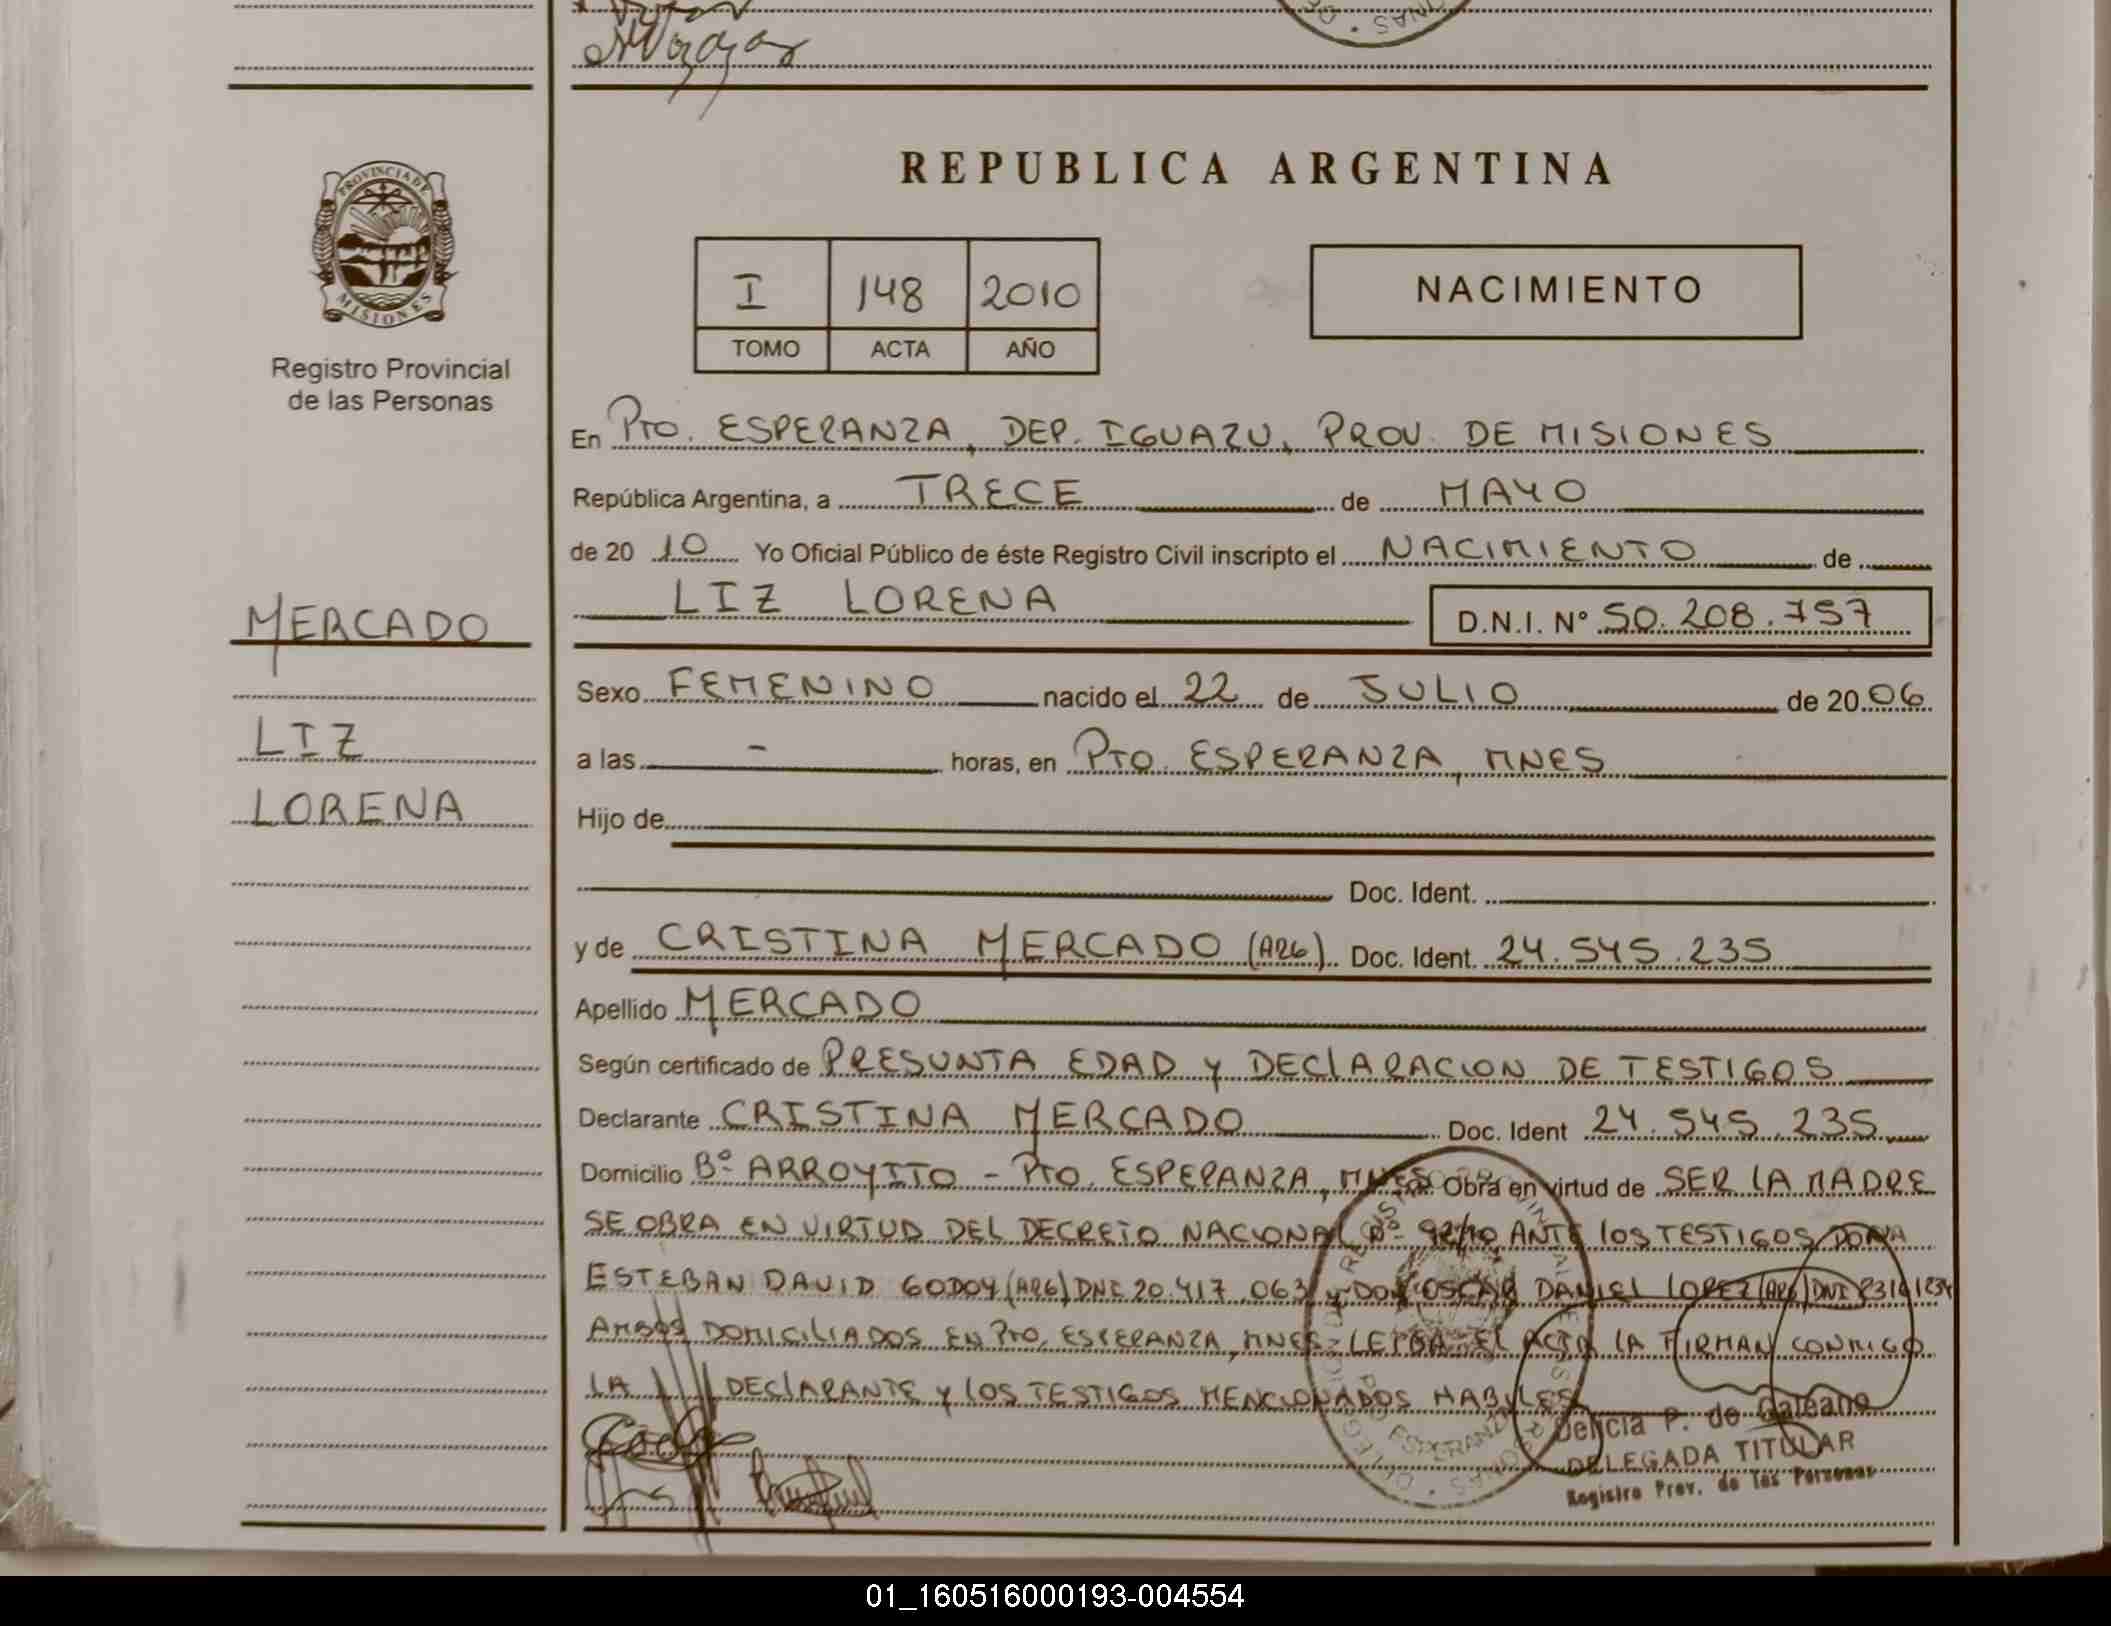 REPUBLICA ARGENTINA
PROVINCIA DE
MISIONES
Registro Provincial
de las Personas
I 148 2010
TOMO ACTA AÑO
NACIMIENTO
En PTO. ESPERANZA, DEP. IGUAZU, PROV. DE MISIONES
República Argentina, a TRECE de MAYO
de 20 10 Yo Oficial Público de éste Registro Civil inscripto el NACIMIENTO de
LIZ LORENA D.N.I. Nº 50.208.757
MERCADO
LIZ
LORENA
Sexo FEMENINO nacido el 22 de JULIO de 20 06
a las - horas, en PTO. ESPERANZA, MNES
Hijo de
Doc. Ident.
y de CRISTINA MERCADO (ARG) Doc. Ident. 24.545.235
Apellido MERCADO
Según certificado de PRESUNTA EDAD y DECLARACION DE TESTIGOS
Declarante CRISTINA MERCADO Doc. Ident 24.545.235
Domicilio Bº ARROYITO - PTO. ESPERANZA, MNES Obra en virtud de SER LA MADRE
SE OBRA EN VIRTUD DEL DECRETO NACIONAL Nº 92/10 ANTE LOS TESTIGOS
ESTEBAN DAVID GODOY (ARG) DNI 20.417.063 y DON OSCAR DANIEL LOPEZ (ARG) DNI
AMBOS DOMICILIADOS EN PTO. ESPERANZA, MNES- LEIDA EL ACTA LA FIRMAN CONMIGO
LA DECLARANTE y LOS TESTIGOS MENCIONADOS HABILES
Delicia P. de Galeano
DELEGADA TITULAR
Registro Prov. de las Personas
01_160516000193-004554